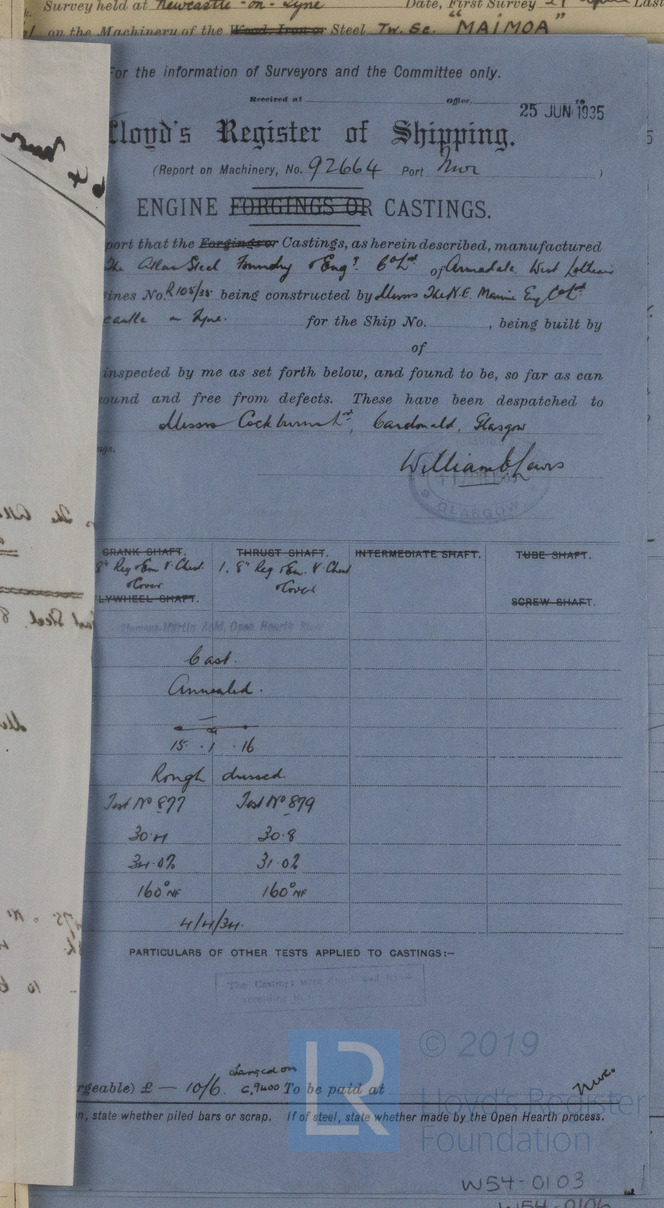 Survey held at Newcastle-on-Tyne Date, First Survey Last
on the Machinery of the Wood, Iron or Steel Tw. Sc. "MAIMOA"
For the information of Surveyors and the Committee only.
Received at Office
25 JUN 1935
Lloyd's Register of Shipping.
(Report on Machinery, No. 92664 Port Nwc )
ENGINE FORGINGS OR CASTINGS.
port that the Forgings or Castings, as herein described, manufactured
The Atlas Steel Foundry & Eng. Co Ltd of Armadale West Lothian
ines No. R105/35 being constructed by Messrs The N.E. Marine Eng Co Ltd
castle on Tyne. for the Ship No. , being built by
of
inspected by me as set forth below, and found to be, so far as can
ound and free from defects. These have been despatched to
Messrs Cockburns Ltd, Cardonald, Glasgow
ngs.
William Laws
GLASGOW
CRANK SHAFT. THRUST SHAFT. INTERMEDIATE SHAFT. TUBE SHAFT.
8" Reg & Em. V. Chest 1. 8" Reg & Em. V. Chest
& Cover & Cover
LYWHEEL SHAFT. SCREW SHAFT.
Siemens-Martin Acid, Open Hearth Steel
Cast.
Annealed.
15 . 1 . 16
Rough dressed
Test No 877 Test No 879
30.4 30.8
34.0% 31.0%
160° NF 160° NF
4/4/34.
PARTICULARS OF OTHER TESTS APPLIED TO CASTINGS:—
The Castings were
according to
rgeable) £ — 10/6. Charged on
C.9400 To be paid at Nwc.
n, state whether piled bars or scrap. If of steel, state whether made by the Open Hearth process.
LR
© 2019
Lloyd's Register
Foundation
W54-0103
W54-0106